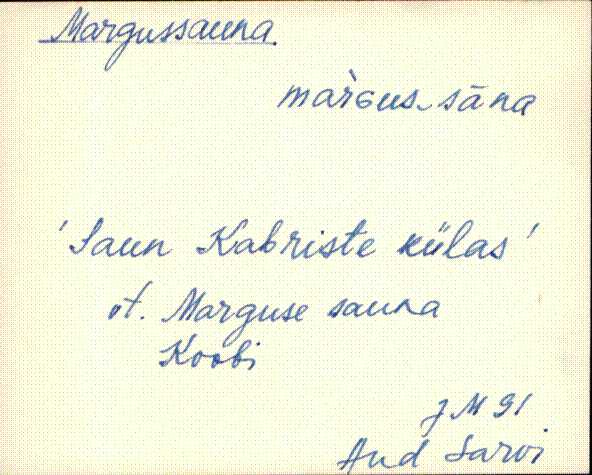 Margussauna.
màrGus-sāna
'Saun Kabriste külas'
vt. Marguse sauna
Koobi
J M 91
And Sarvi